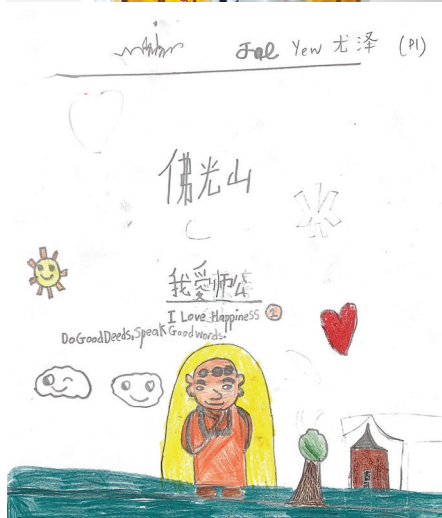 Yew 尤泽 (P1)
佛光山
我愛师公
I Love Happiness 2
Do Good Deeds, Speak Good words.